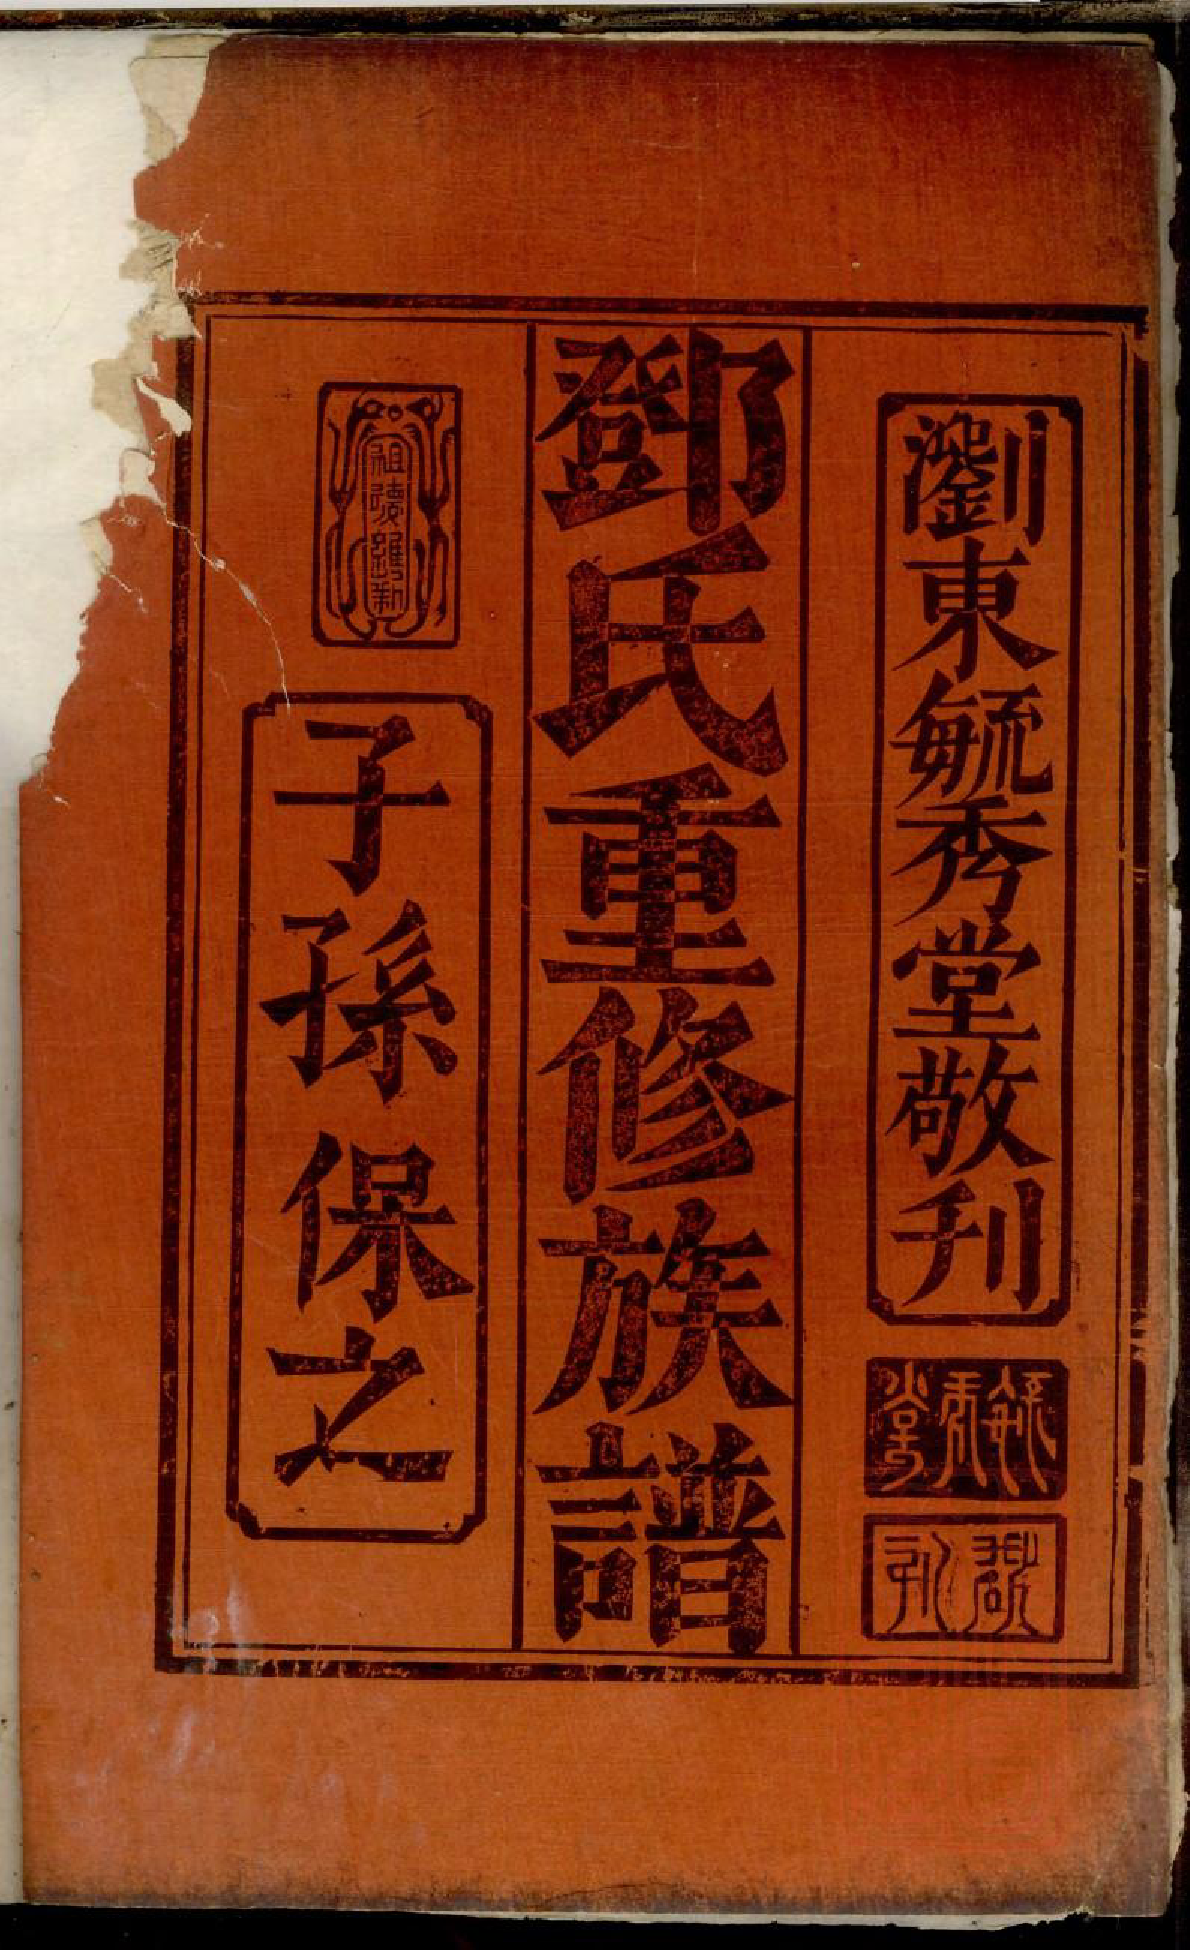 瀏東毓秀堂敬刊
毓秀堂
鄧氏重修族譜
祖德維新
子孫保之